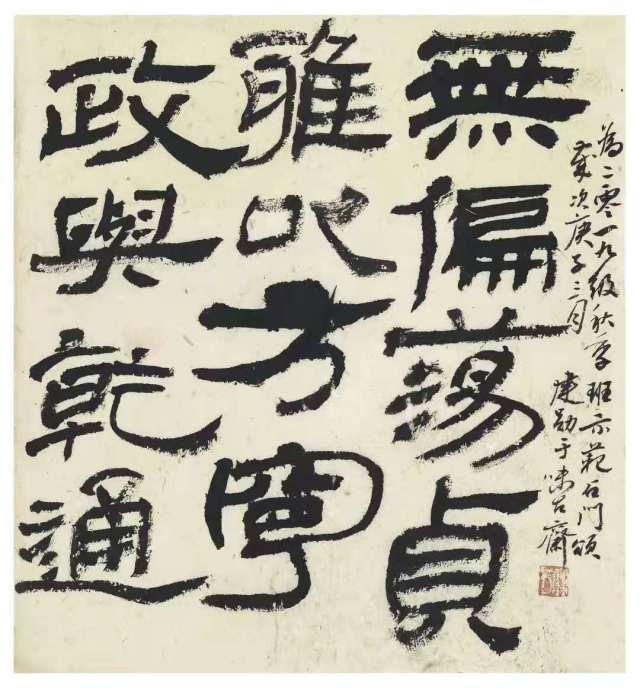 無偏蕩貞
雅以方寧
政與乾通
為二零一九級秋季班示範石門頌
歲次庚子三月 建勛于味古齋